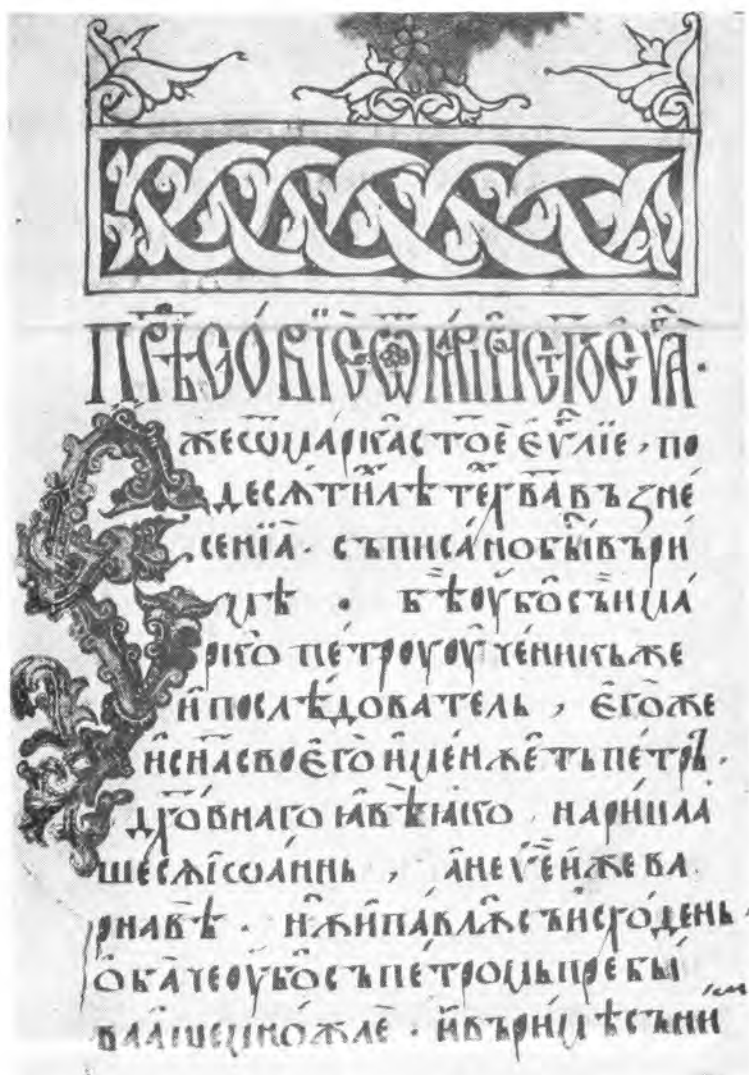 прѣⷣсо́вїе є҆́ѿ ма́рка ст҃го є҆ѵⷢ҇а·
же ѿ ма́рка ст҃ое є҆ѵⷢ҇лїе, по
десѧ́тнⷯ лѣтеⷯ х҃ва въꙁне
сенїа̀· съписа́но бы́ въ ри
мѣ · бѣ ѹ҆́бо съи ма́
рко петроу оу҆ченнкь же
и҆ послѣ́дователь, є҆го́же
и҆ сн҃а своего̀ и҆менꙋ́еть пе́трь·
дро́внаго ꙗ҆́вѣ ꙗ҆́ко нарица́а
ше сѧ і҆ѡа́ннь, а҆неѱе́и же ва
рнавѣ· нѫ и҆ па́влѫ съисхо́день·
ѻ҆ба́че ѹ҆́бо съ пе́тромь пребы
ва́аше мно́жае· и҆ въ ри́мѣ съ ни
/см